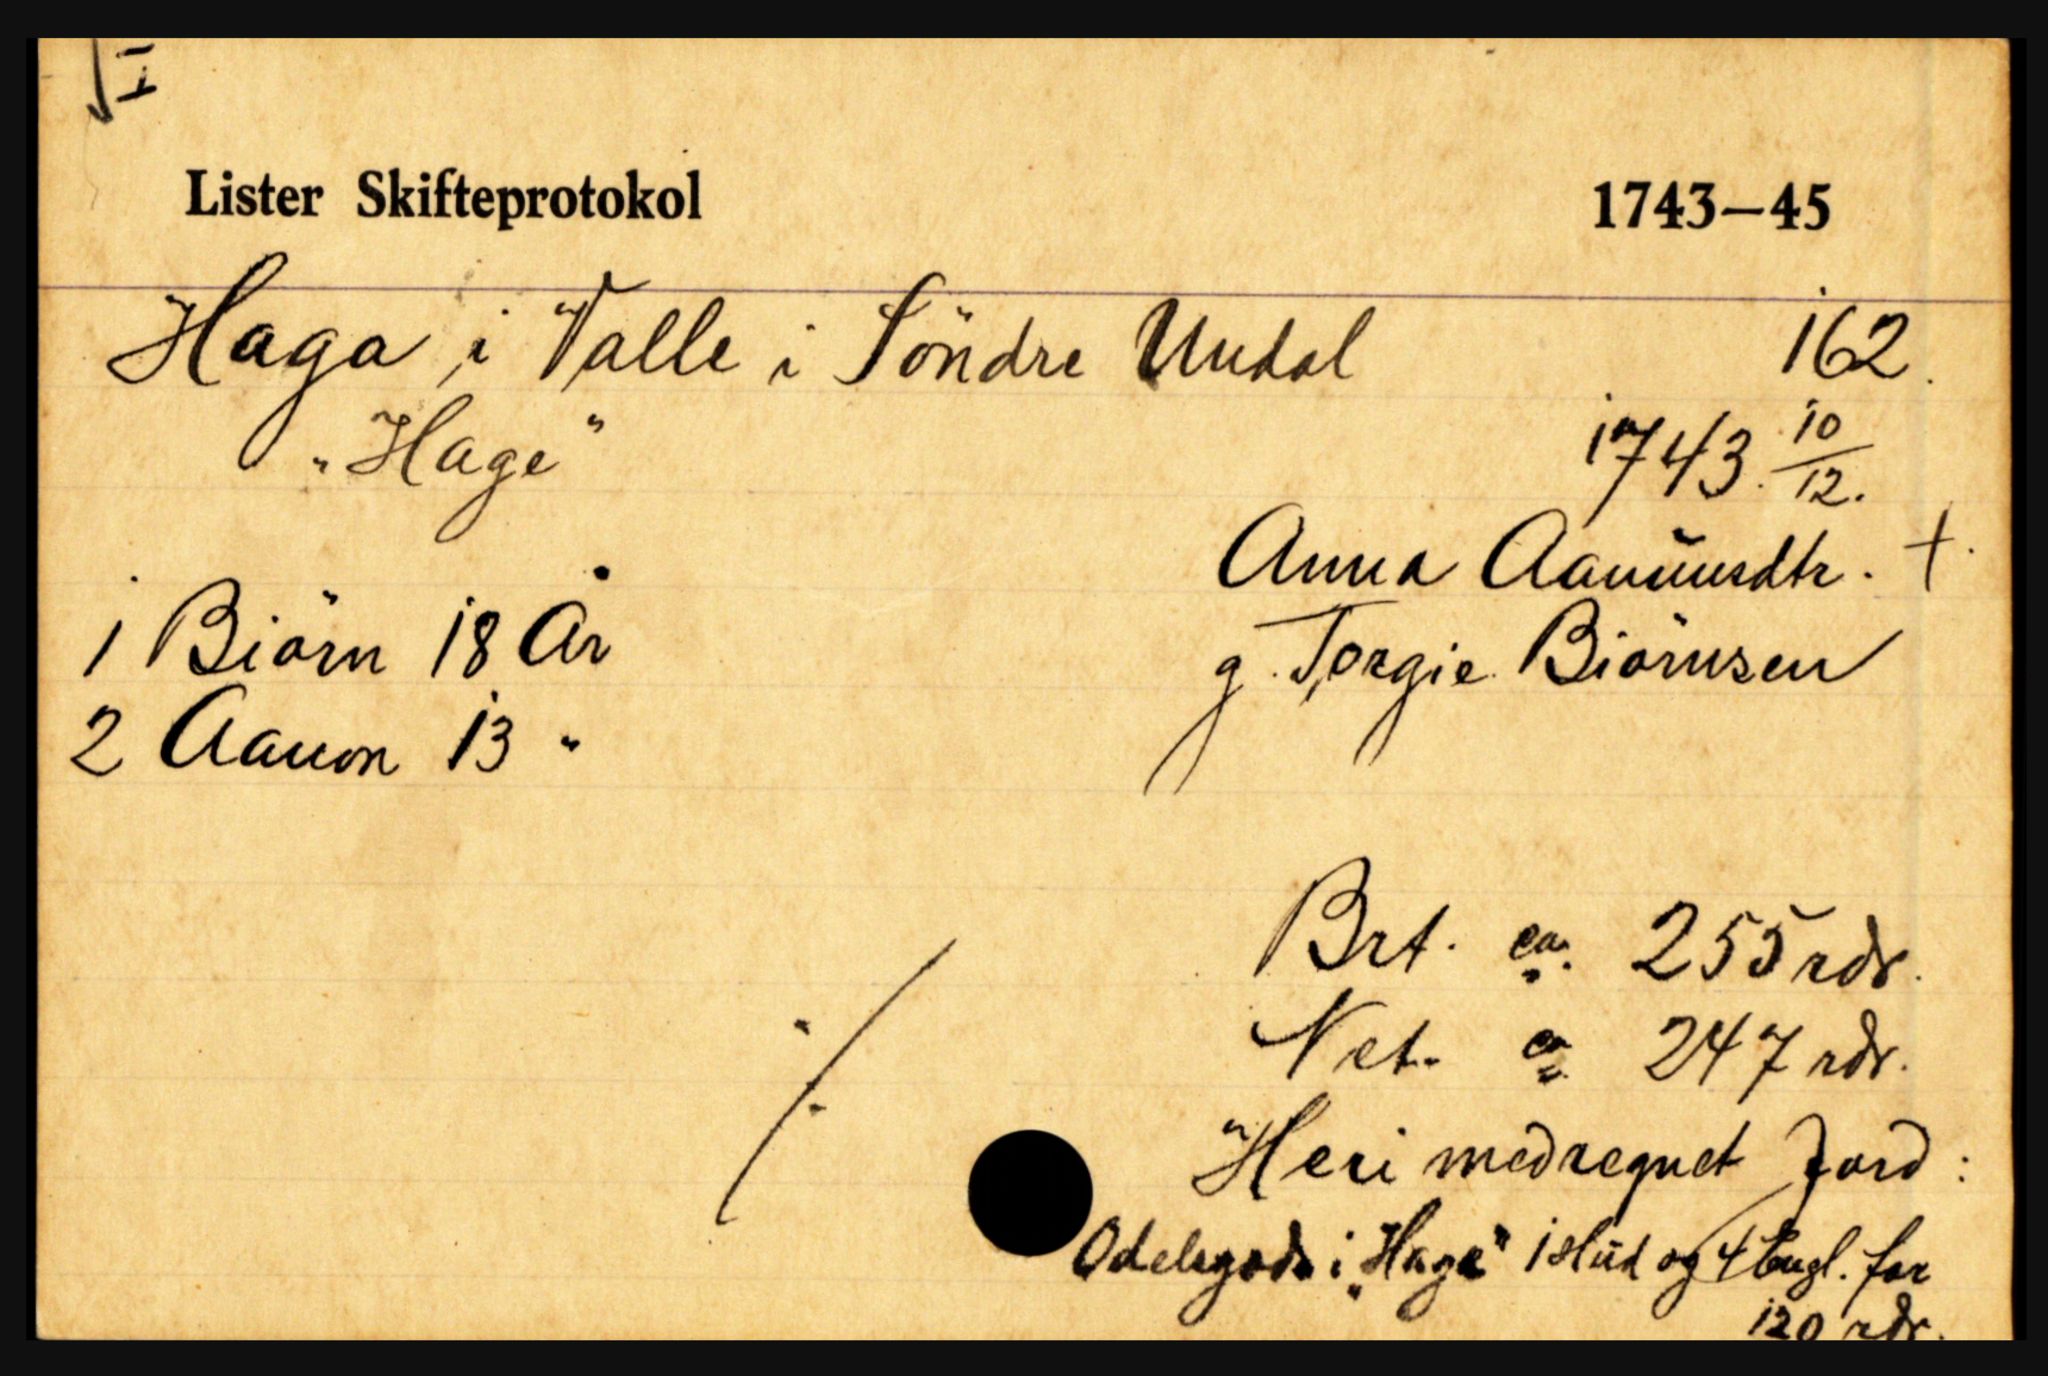 Lister Skifteprotokol 1743—45
Haga i Valle i Söndre Undal 162.
"Hage"
1743. 10/12.
Anna Aanundsdtr. +.
1 Biörn 18 År
g. Torgie Biörnsen
2 Aanon 13 "
Brt. ca. 255 rdr.
Net. ca 247 rdr.
Heri medregnet Jord:
Odelsgods i "Hage" 1 Hud og 4 Engl. for
120 rdr.